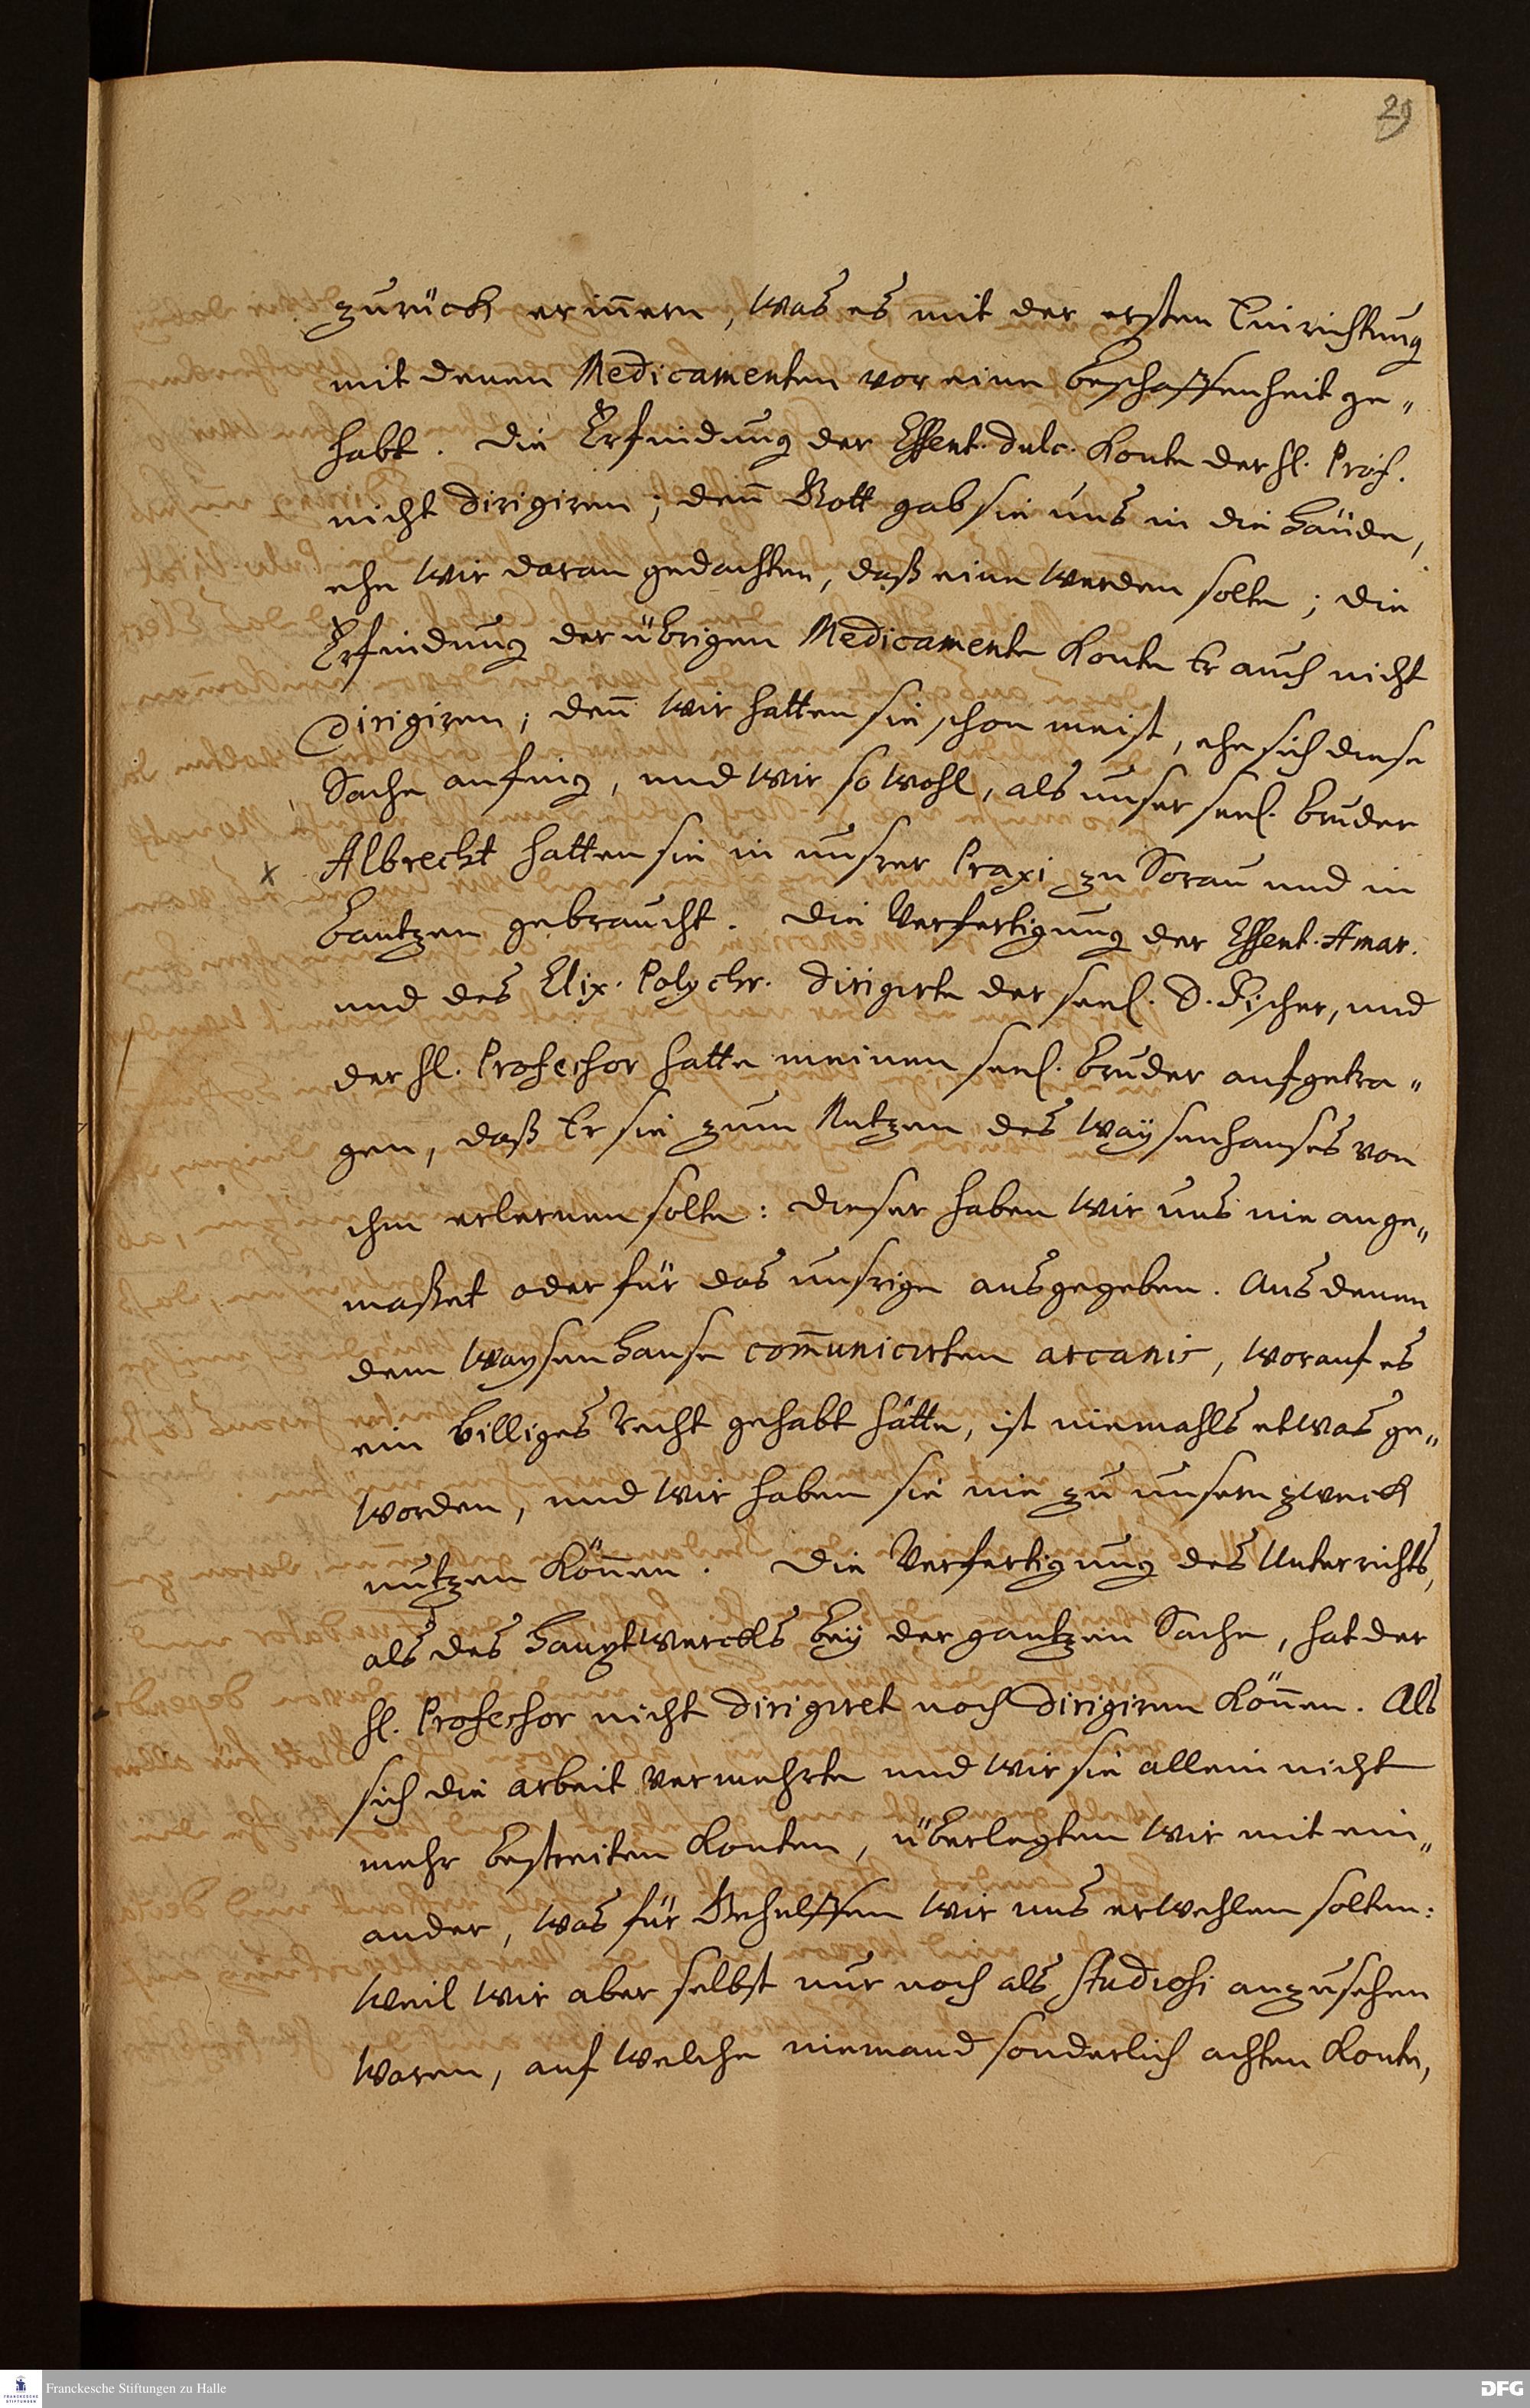 29
zurück erin̄ern, was es mit der ersten Einrichtung
mit denen Medicamenten vor eine beschaffenheit ge„
habt. Die Erfindung der Essent. dulc. konte der H. Prof.
nicht dirigiren; den̄ Gott gab sie uns in die Hände,
ehe wir daran gedachten, daß eine werden solte; die
Erfindung der übrigen Medicamente konte Er auch nicht
dirigiren; den̄ wir hatten sie schon meist, ehe sich diese
Sache anfing, und wir so wohl, als unser seel. bruder
x Albrecht hatten sie in unsrer Praxi zu Sorau und in
bautzen gebraucht. Die Verfertigung der Essent. Amar.
und des Elix. Polychr. dirigirte der seel. D. Fischer, und
der H. Professor hatte meinem seel. bruder aufgetra„
gen, daß Er sie zum Nutzen des Waysenhauses von
ihm erlernen solte: dieser haben wir uns nie ange„
maßet oder für das unsrige ausgegeben. Aus denen
dem Waysenhause com̄unicirten arcanis, worauf es
ein billiges recht gehabt hätte, ist niemahls etwas ge„
worden, und wir haben sie nie zu unserm zweck
nutzen kön̄en. Die Verfertigung des Unterrichts,
als des Hauptwercks bey der gantzen Sache, hat der
H. Professor nicht dirigiret noch dirigiren kön̄en. Als
sich die arbeit vermehrte und wir sie allein nicht
mehr bestreiten konten, überlegten wir mit ein„
ander, was für Gehülffen wir uns erwehlen solten:
weil wir aber selbst nur noch als Studiosi anzusehen
waren, auf welche niemand sonderlich achten konte,
FRANCKESCHE
STIFTUNGEN
Franckesche Stiftungen zu Halle
DFG